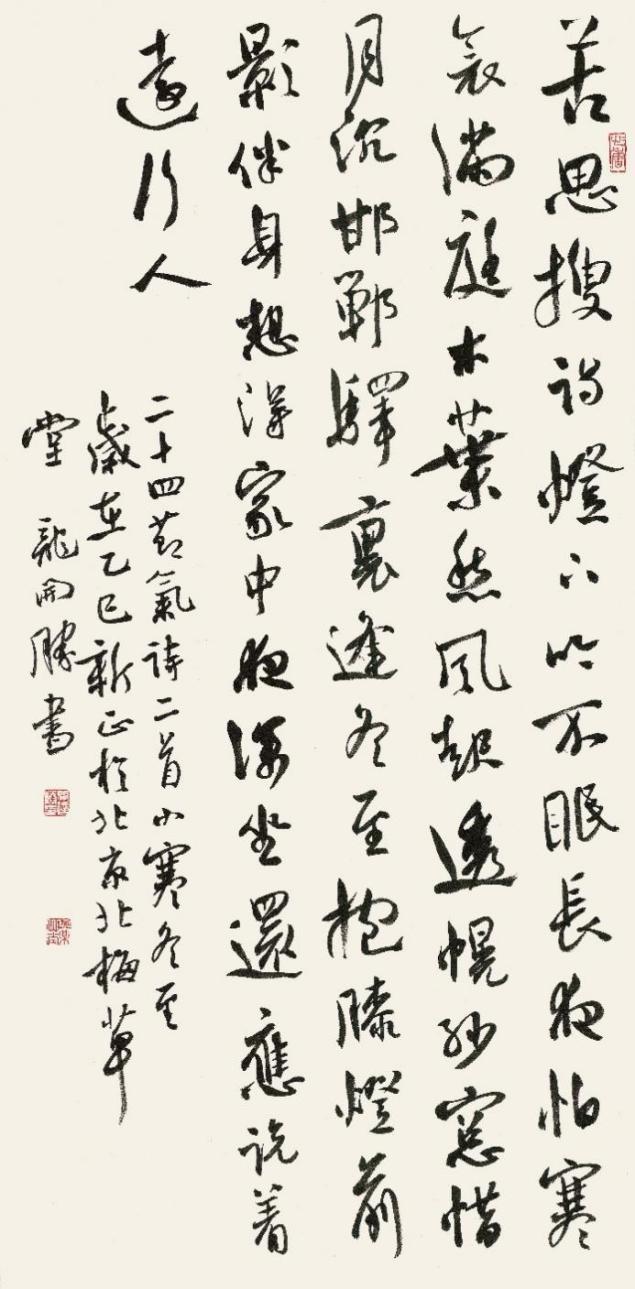 苦思搜詩燈下吟不眠長夜怕寒
衾滿庭木葉愁風起透幌紗窗惜
月沉邯鄲驛裏逢冬至抱膝燈前
影伴身想得家中夜深坐還應説着
遠行人
二十四節氣詩二首小寒冬至
歲在乙巳新正於北京北梅草
堂龍開勝書